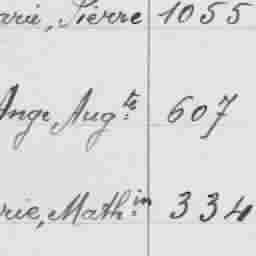 arie, Pierre 1055
Ange, Aug.te 607
rie, Math.in 334